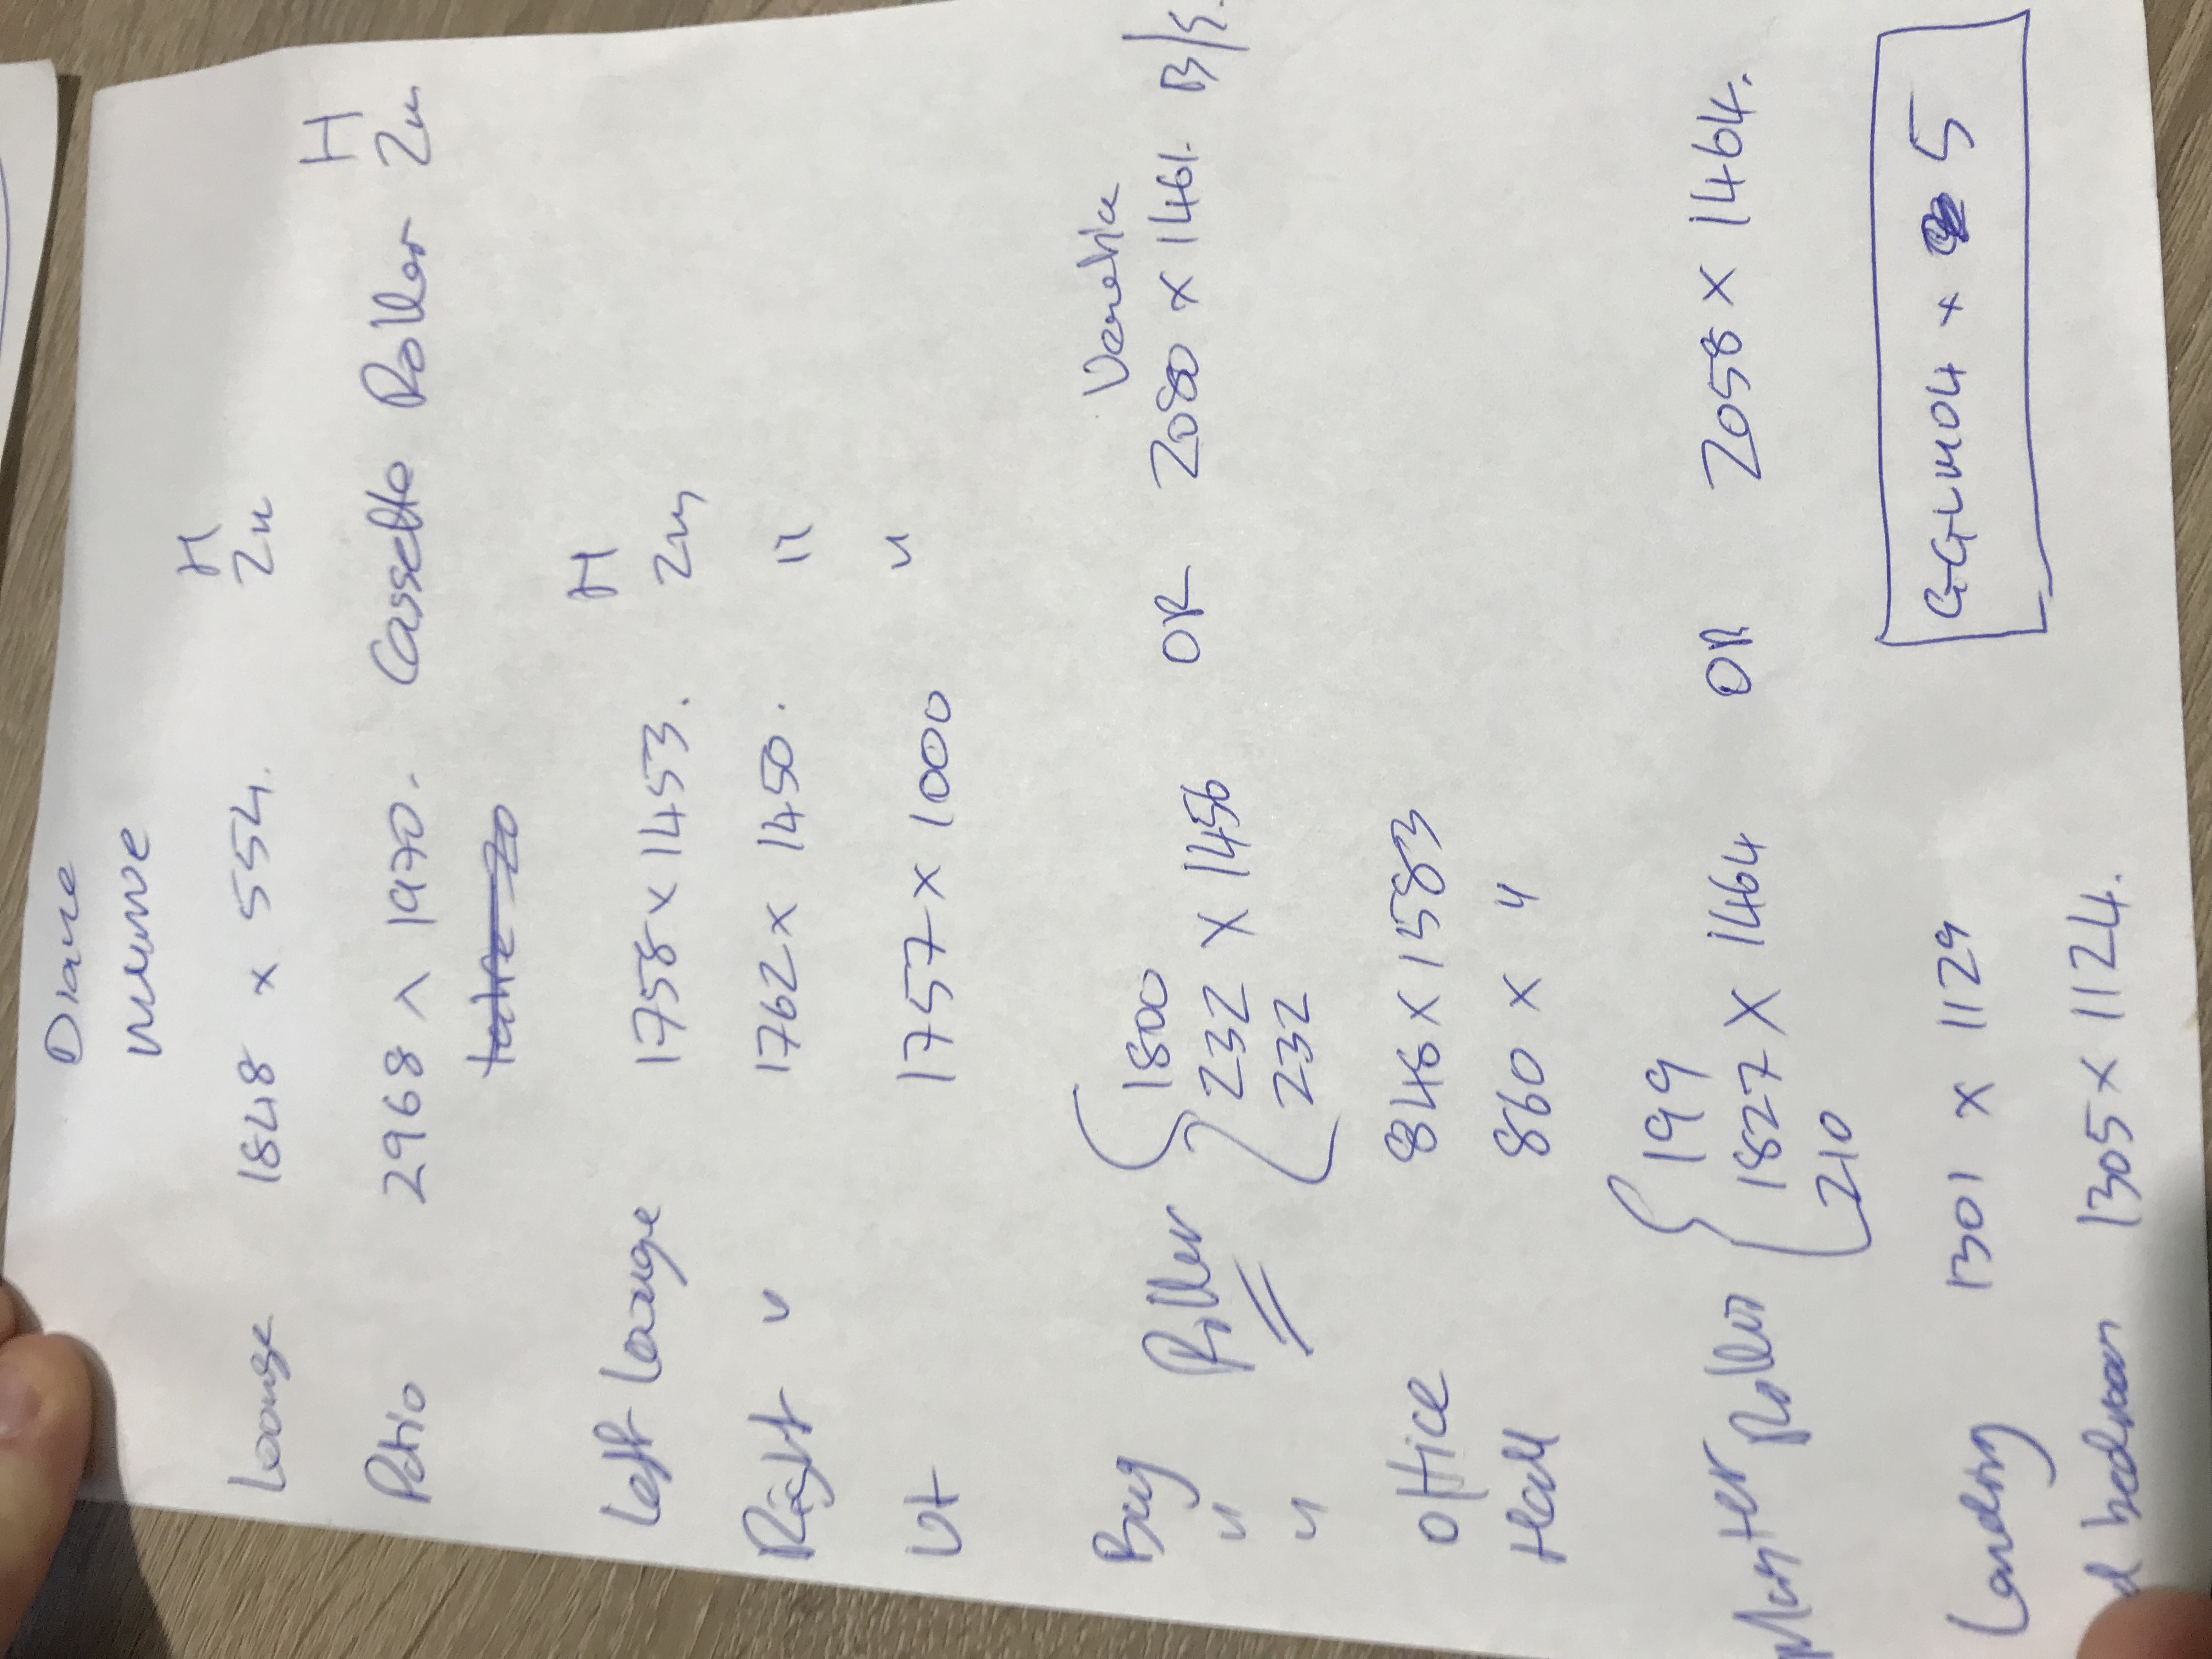 Diane
Lounge 1848 x 554. H 2m
Patio 2968 x 1970. Cassette Roller H 2m
Left Lounge 1758 x 1453. H 2m
Right " 1762 x 1450. "
Ut 1757 x 1000 "
Bay Roller 1800
" 232 x 1456 OR Venetia 2080 x 1461. B/S.
" 232
Office 846 x 1583
Hall 860 x "
199
Master Roller 1827 x 1464 OR 2058 x 1464.
210
Landing 1301 x 1129
bedroom 1305 x 1124.
GGLM04 x 5